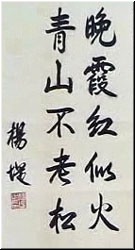 晚霞红似火
青山不老松
杨堤